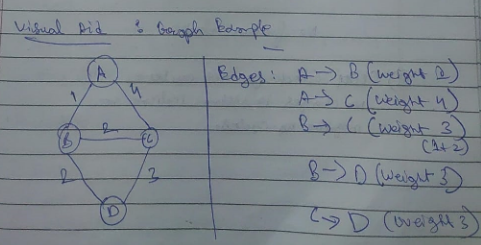 Visual Aid : Graph Example
A
1
4
B
2
C
2
3
D
Edges: A → B (weight 1)
A → C (weight 4)
B → C (weight 3)
(1+2)
B → D (weight 3)
C → D (weight 3)